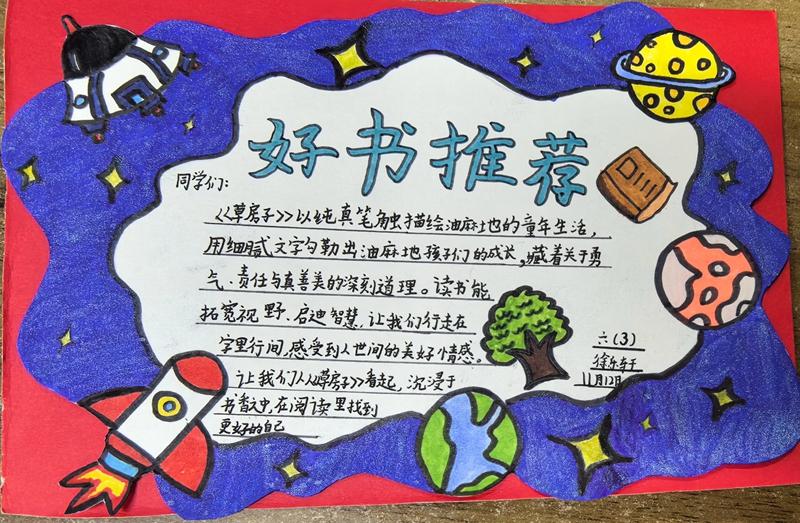 好书推荐
同学们:
《草房子》以纯真笔触描绘油麻地的童年生活,
用细腻文字勾勒出油麻地孩子们的成长,藏着关于勇
气、责任与真善美的深刻道理。读书能
拓宽视野、启迪智慧,让我们行走在
字里行间,感受到人世间的美好情感。
让我们从《草房子》看起,沉浸于
书香之中,在阅读里找到
更好的自己
六(3)
11月12日